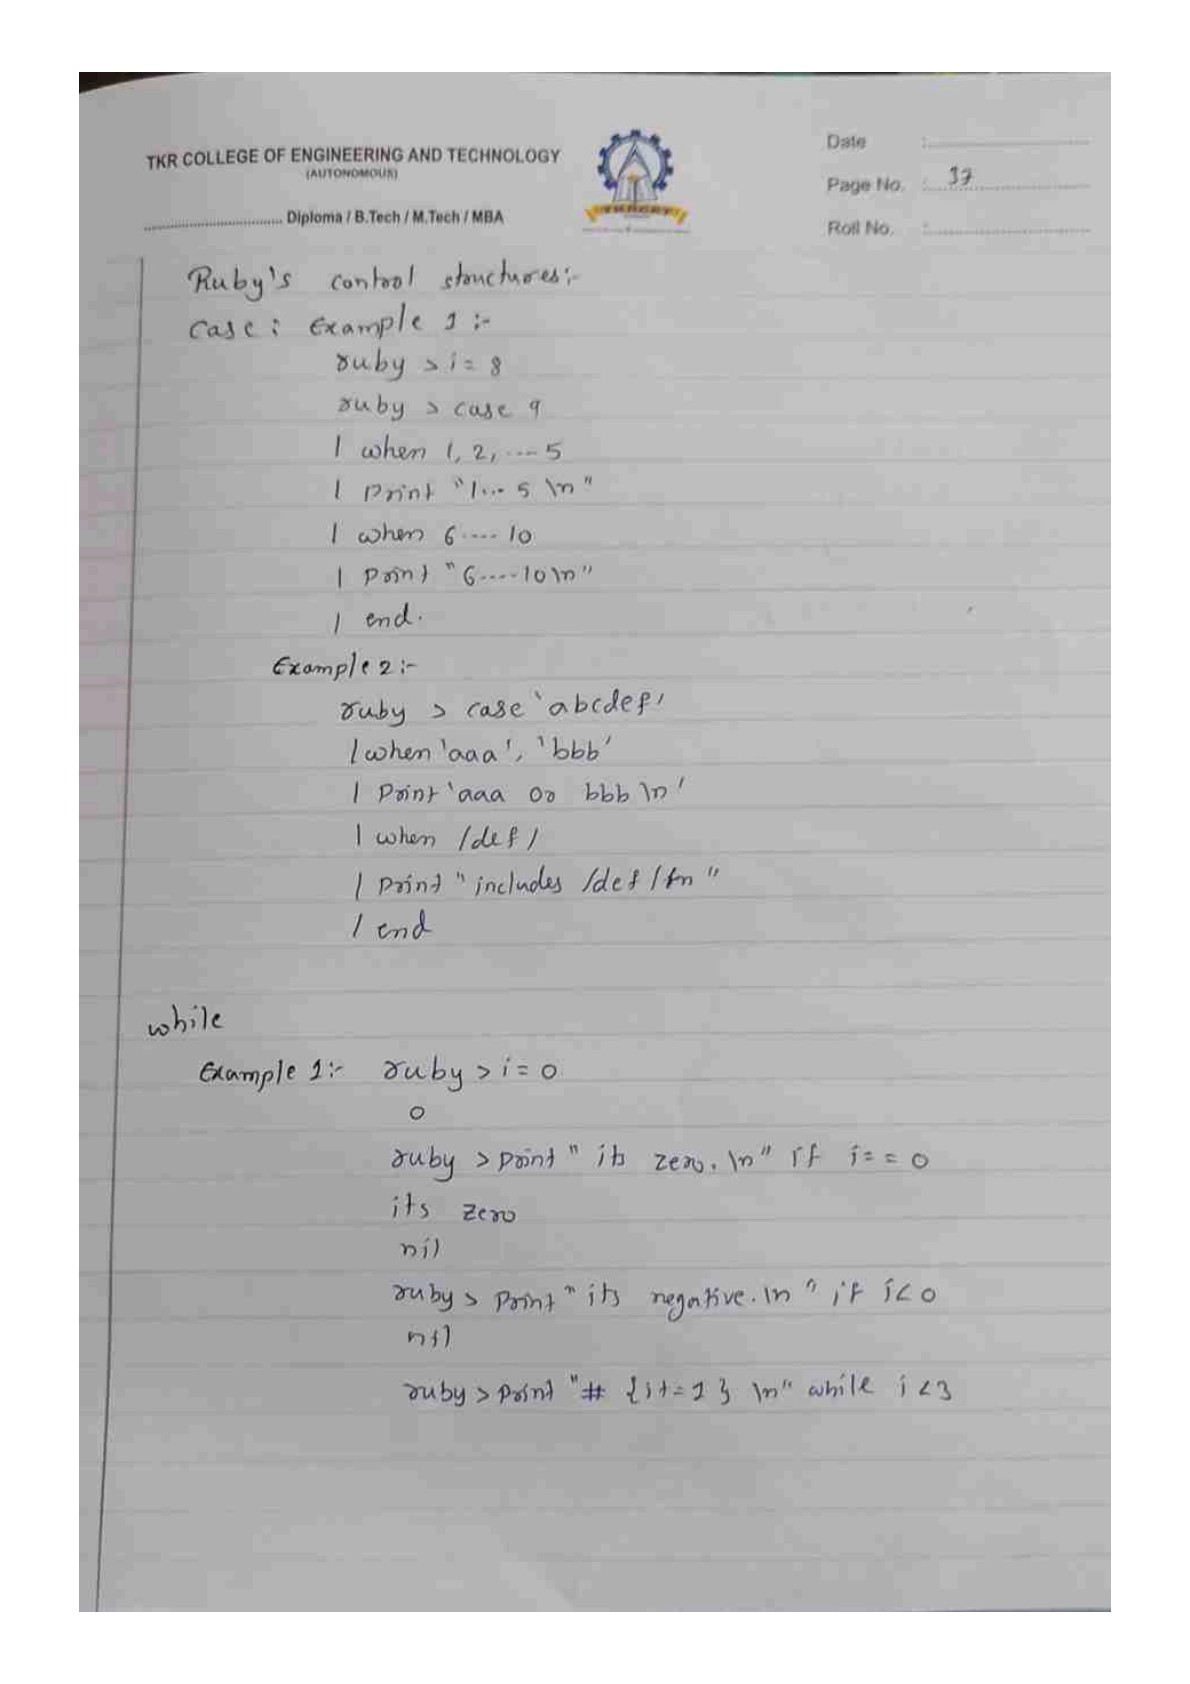 TKR COLLEGE OF ENGINEERING AND TECHNOLOGY
(AUTONOMOUS)
Diploma / B.Tech / M.Tech / MBA
Date :
Page No. : 37
Roll No. :
Ruby's control structures:-
Case: Example 1 :-
ruby > i = 8
ruby > case 9
| when 1, 2, ---- 5
| print "1... 5 \n"
| when 6 ---- 10
| print "6-----10\n"
| end.
Example 2 :-
ruby > case 'abcdef'
| when 'aaa', 'bbb'
| print 'aaa or bbb \n'
| when /def/
| print "includes /def/ \n"
| end
while
Example 1:- ruby > i = 0
0
ruby > print "its zero. \n" if i == 0
its zero
nil
ruby > print "its negative. \n" if i < 0
nil
ruby > print "# {i+=1} \n" while i < 3